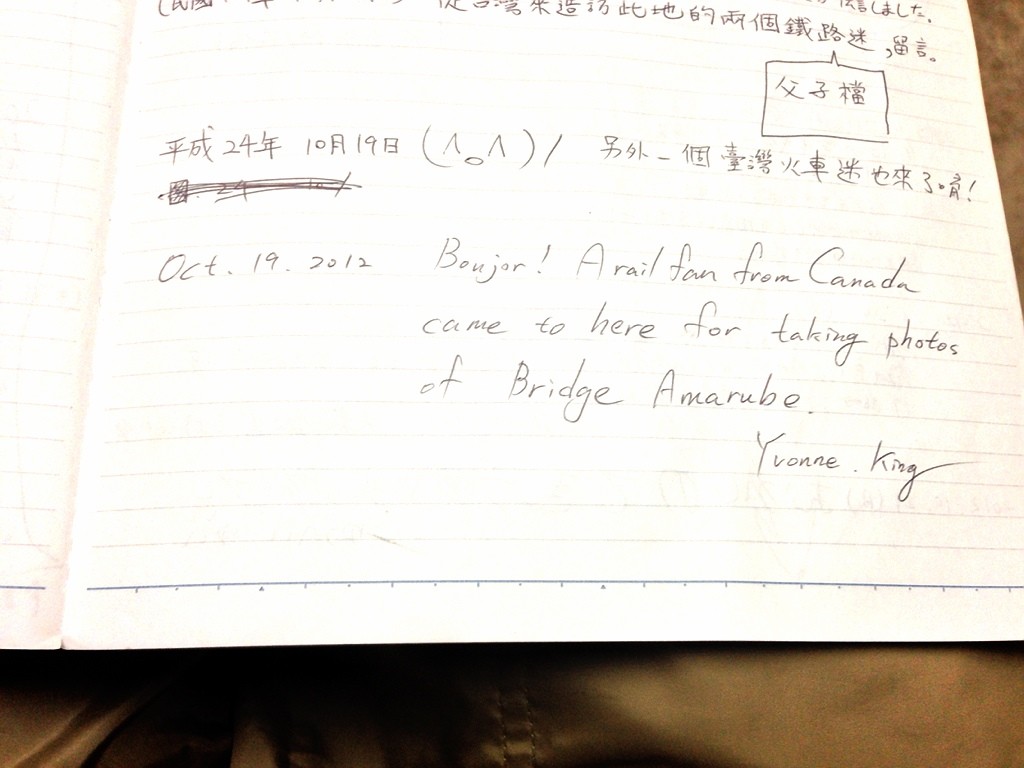 從台灣來造訪此地的兩個鐵路迷,留言。
父子檔
平成24年 10月19日 (^o^)/ 另外一個臺灣火車迷也來了唷!
Oct. 19. 2012 Boujor! A rail fan from Canada
came to here for taking photos
of Bridge Amarube.
Yvonne. King